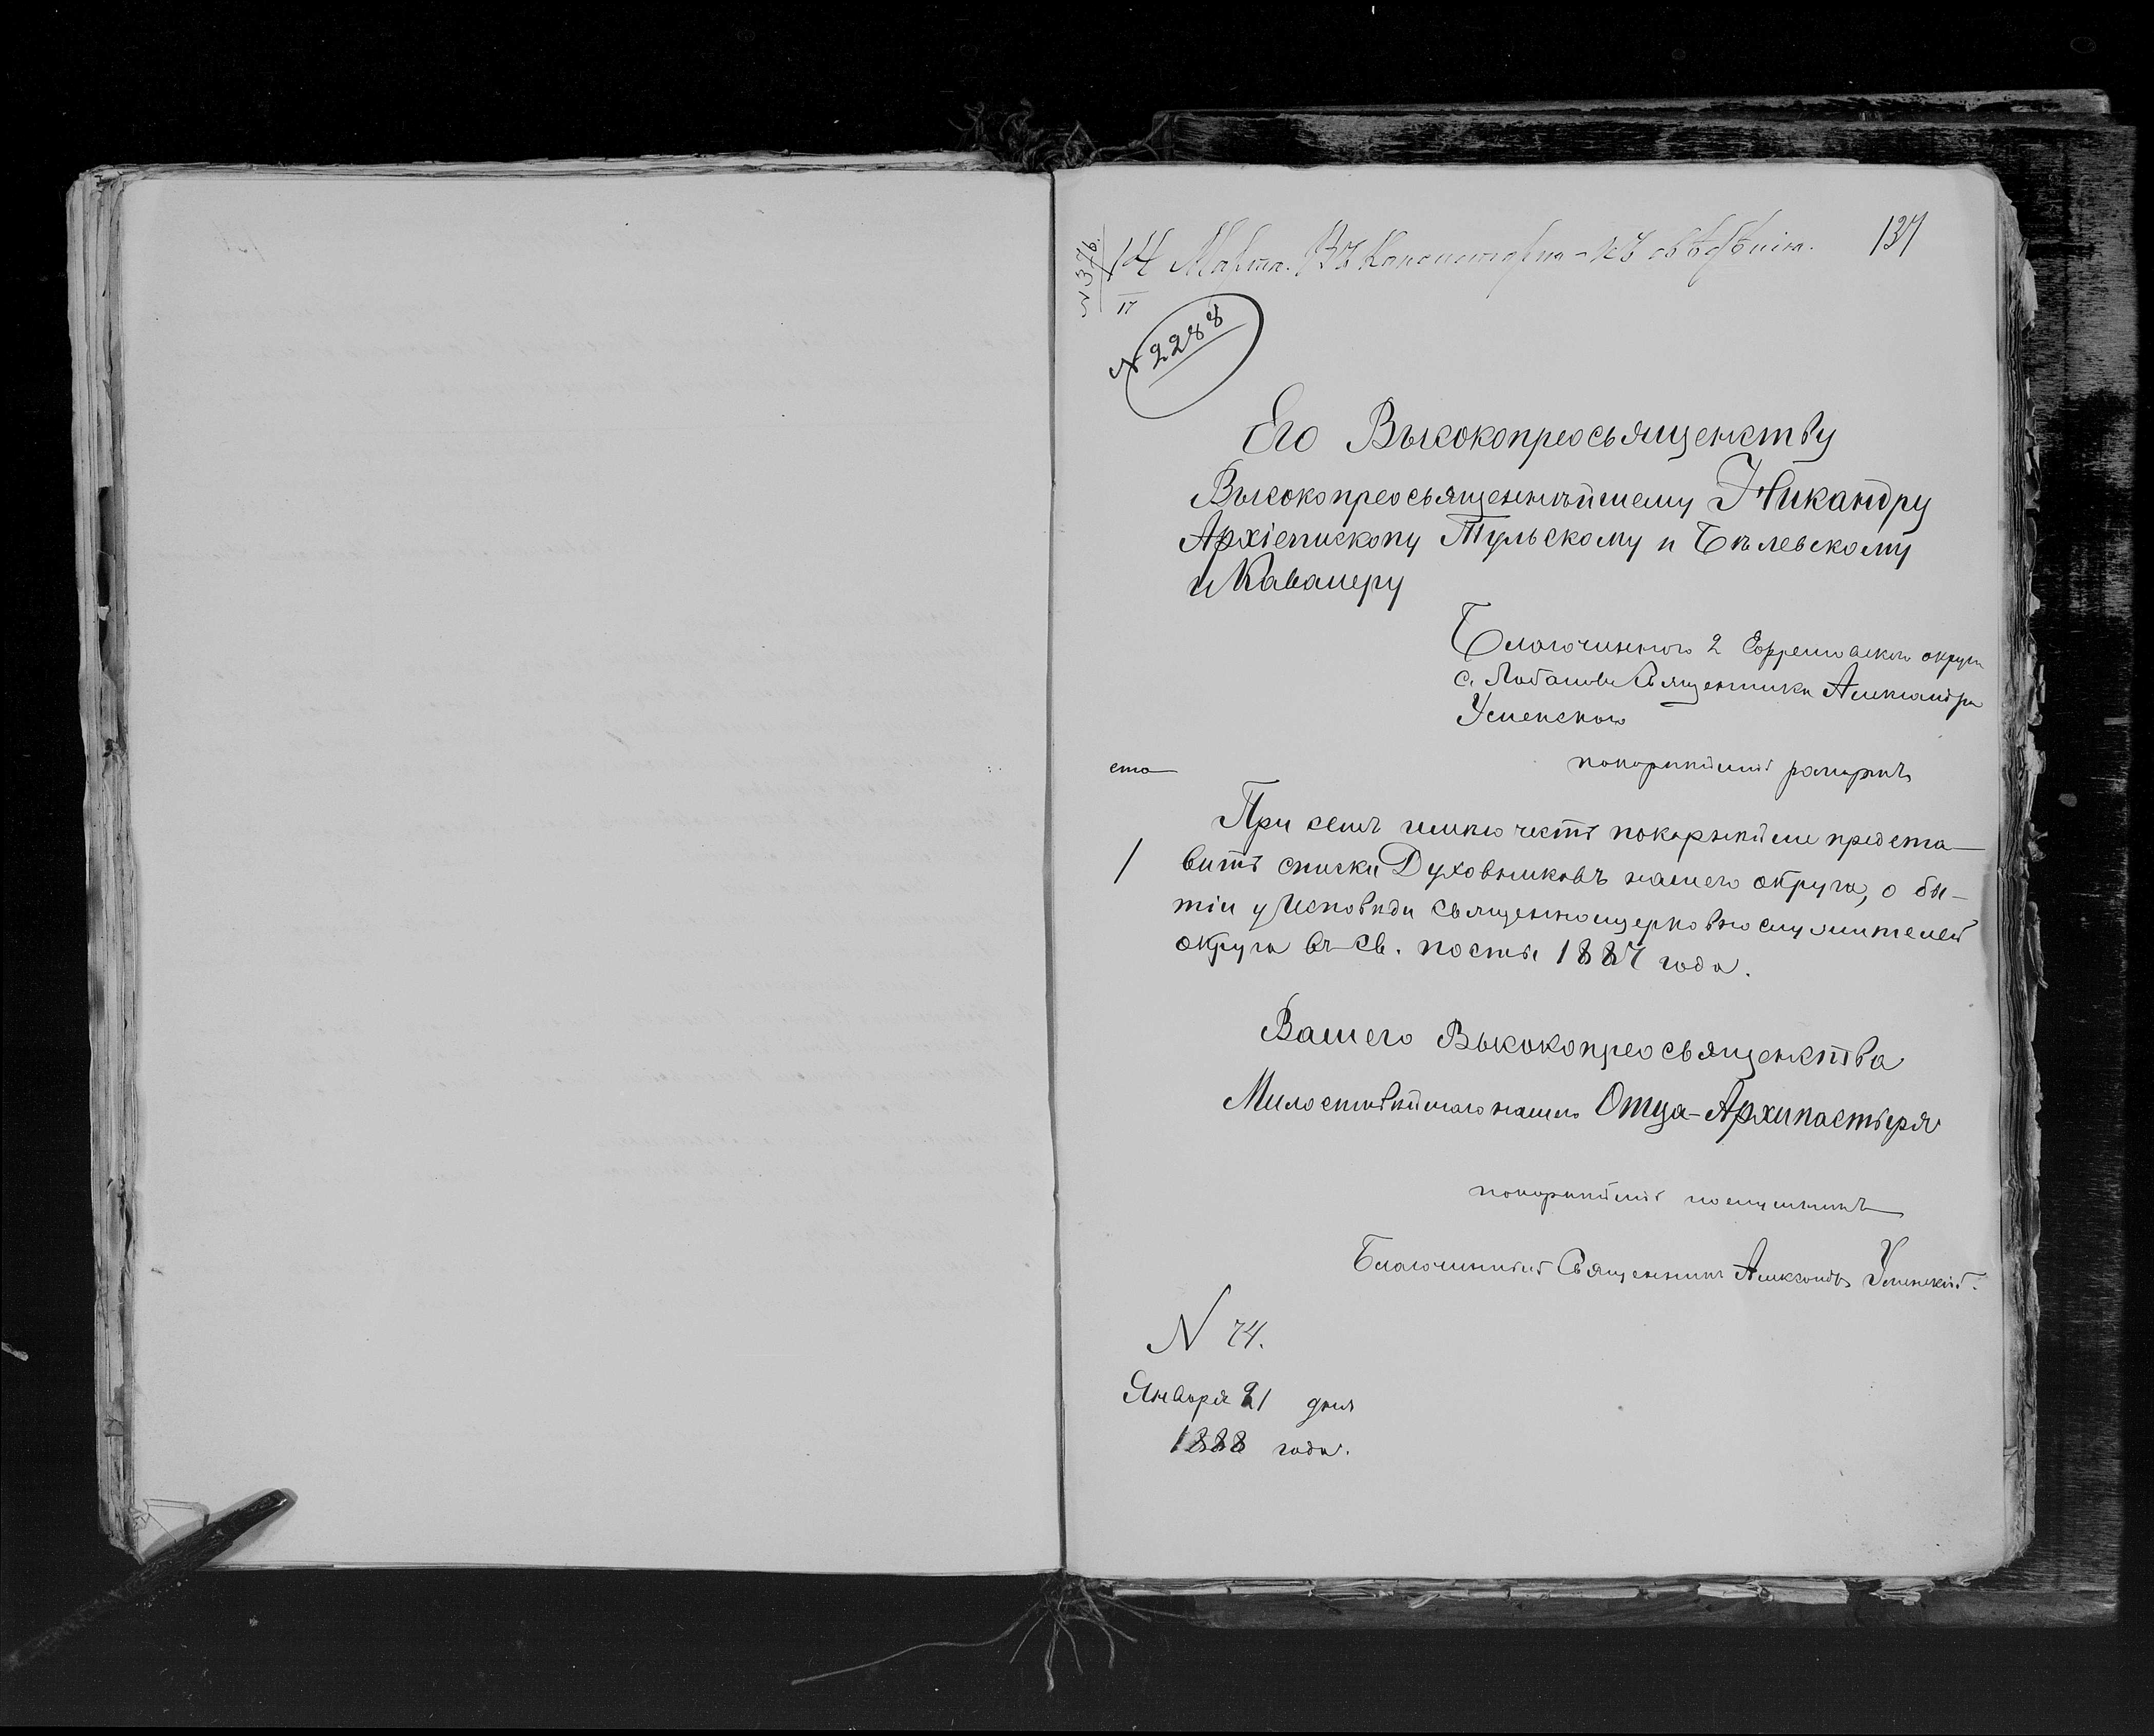 137
N 376.
14 Марта. Въ Консисторію – къ свѣдѣнію.
17
N 2288
Его Высокопреосвященству
Высокопреосвященнѣйшему Никандру
Архіепископу Тульскому и Бѣлевскому
и Кавалеру
Благочиннаго 2 Ефремовскаго округа
с. Лобанова Священника Александра
Успенскаго
покорнѣйшій рапортъ
При семъ имѣю честь покорнѣйше предста-
вить списки Духовниковъ нашего округа, о бы-
тіи у Исповѣди священноцерковнослужителей
округа въ св. посты 1887 года.
Вашего Высокопреосвященства
Милостивѣйшаго нашего Отца-Архипастыря
покорнѣйшій послушникъ
Благочинный Священникъ Александръ Успенскій.
N 74.
Января 21 дня
1888 года.